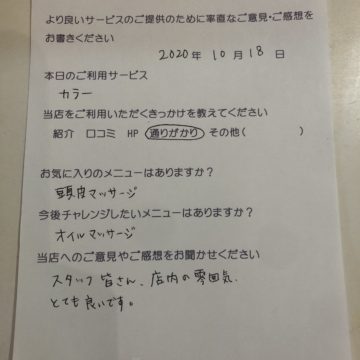 より良いサービスのご提供のために率直なご意見・ご感想を
お書きください
2020年 10月 18日
本日のご利用サービス
カラー
当店をご利用いただくきっかけを教えてください
紹介 口コミ HP 通りがかり その他( )
お気に入りのメニューはありますか?
頭皮マッサージ
今後チャレンジしたいメニューはありますか?
オイルマッサージ
当店へのご意見やご感想をお聞かせください
スタッフ皆さん、店内の雰囲気、
とても良いです。